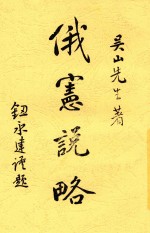 吴山先生著
俄憲說略
鈕永建謹題